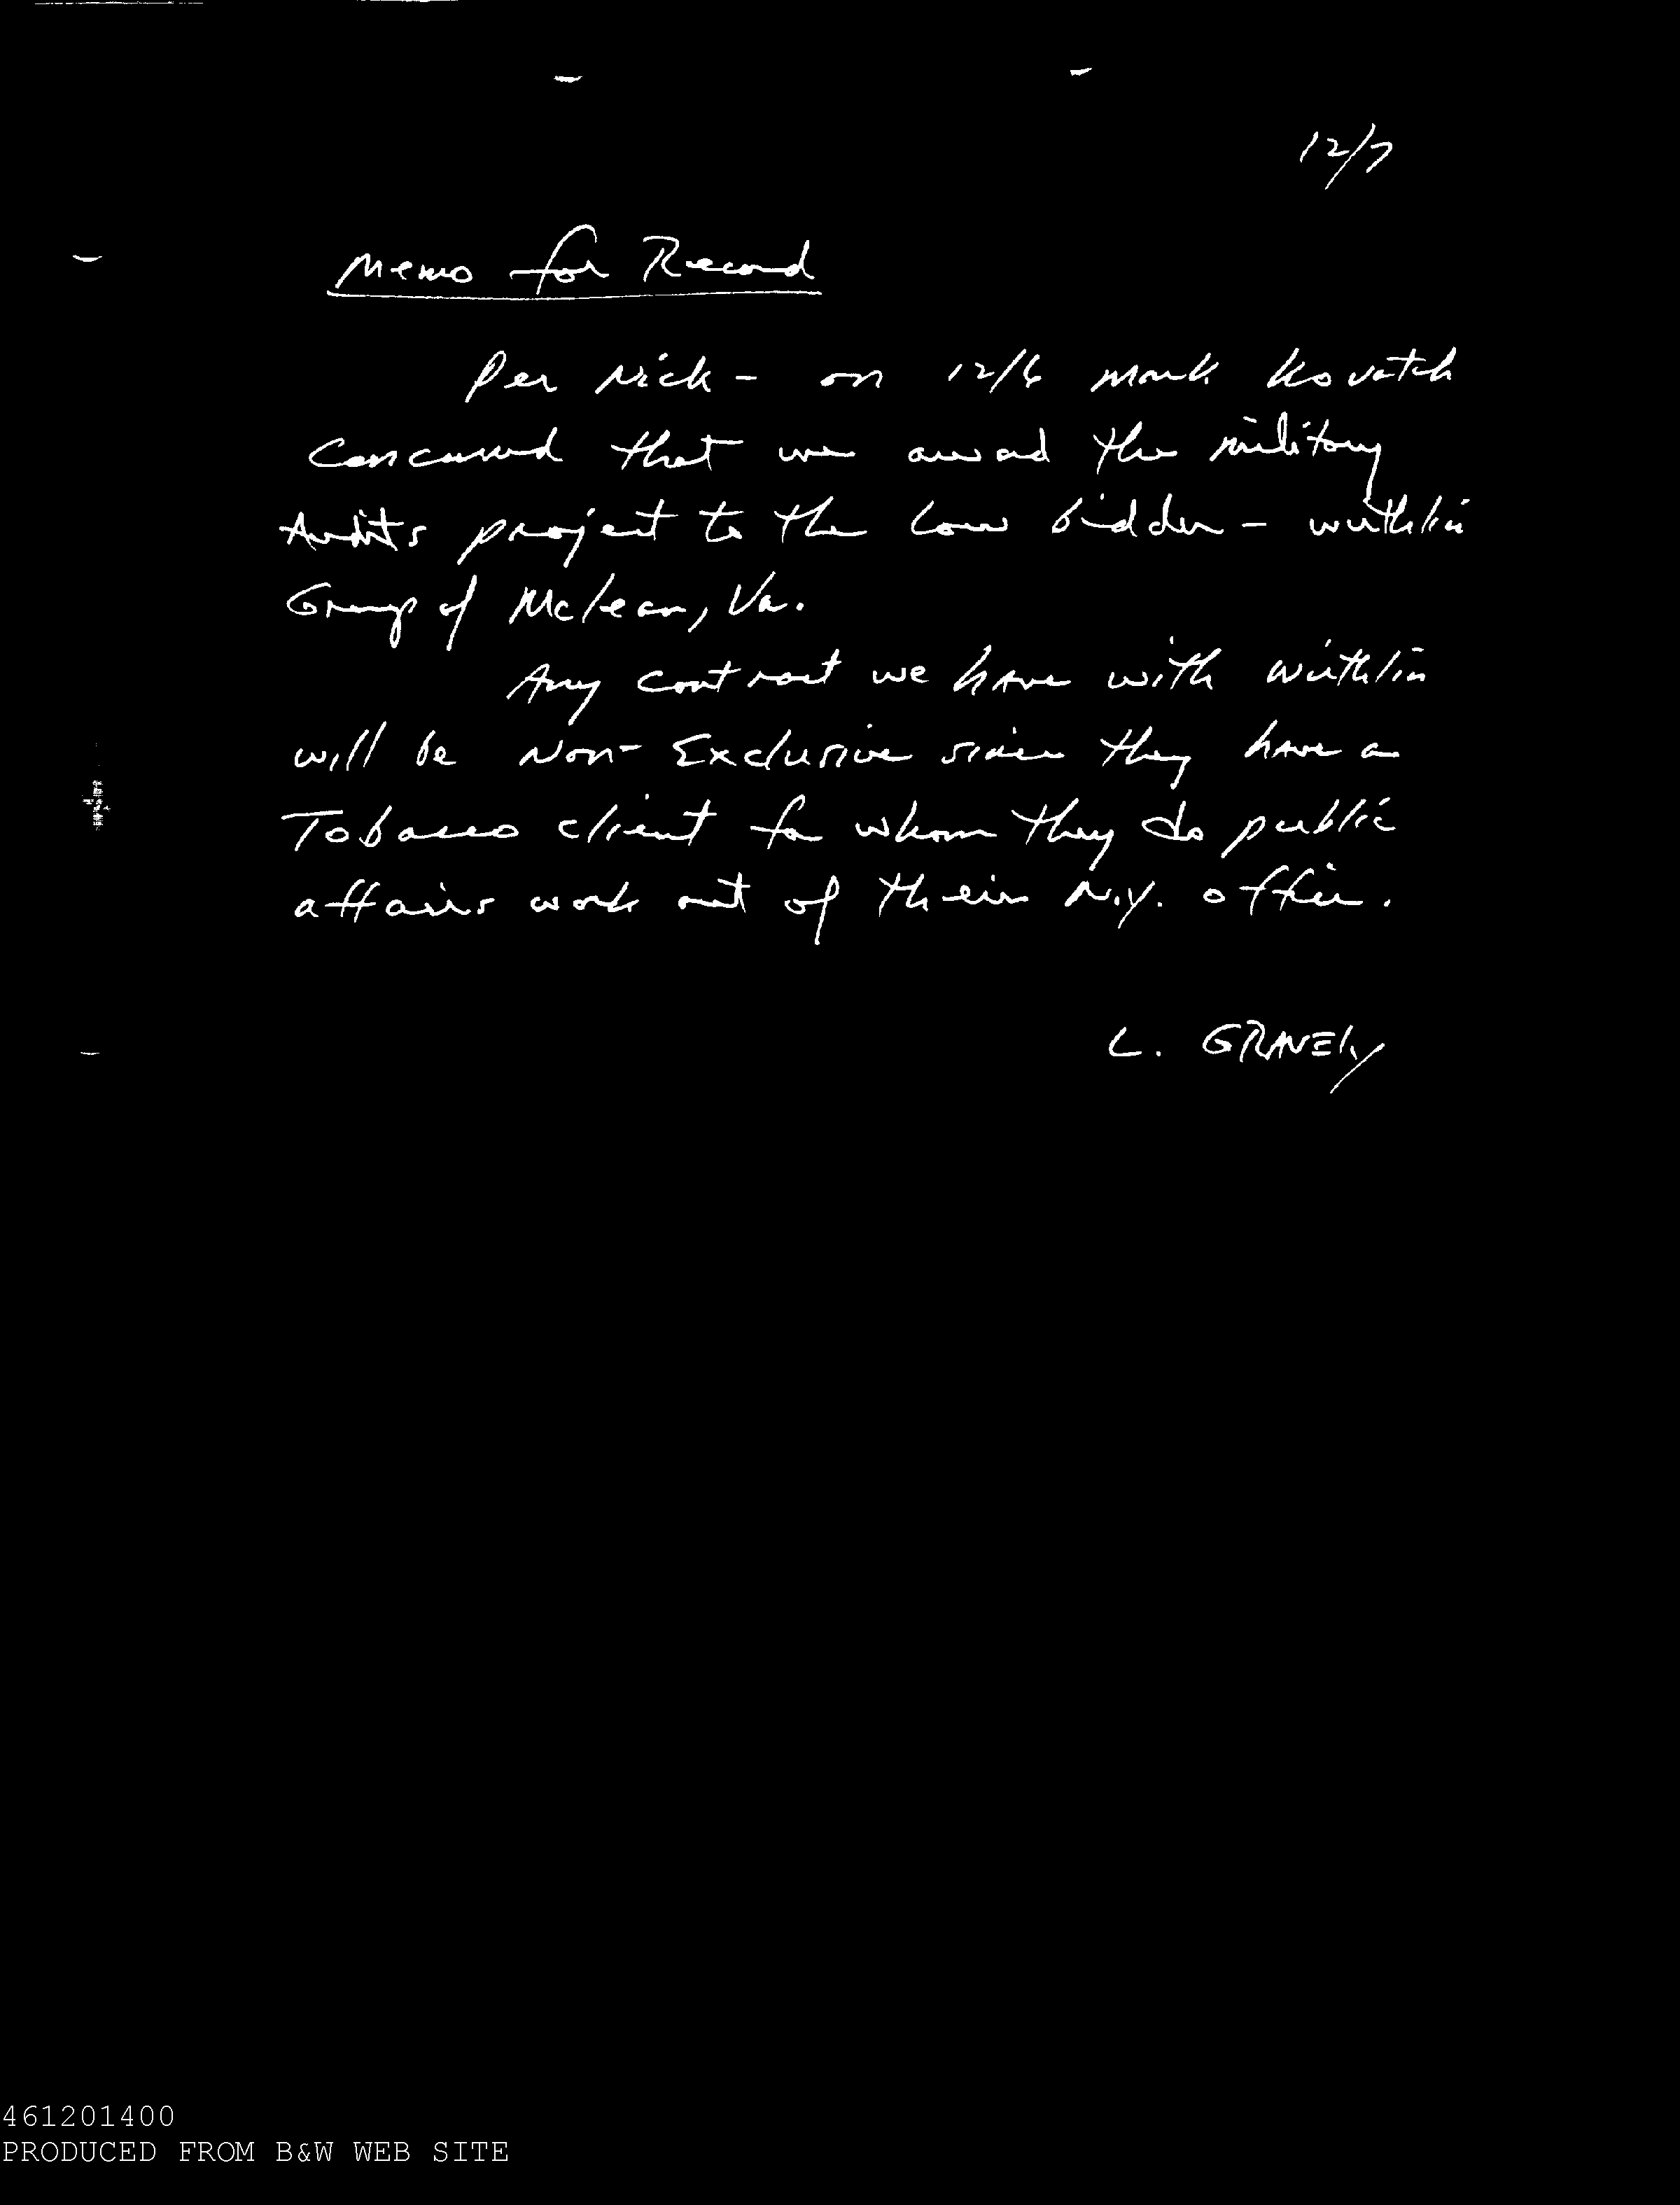 12/7
Memo for Record
Per Nick - on 12/6 Mark Kovatch
Concurred that we award the military
Audits project to the low bidder - Wirthlin
Group of McLean, Va.
Any contract we have with Wirthlin
will be Non-Exclusive since they have a
Tobacco client for whom they do public
affairs work out of their N.Y. office.
L. GRAVELY
461201400
PRODUCED FROM B&W WEB SITE